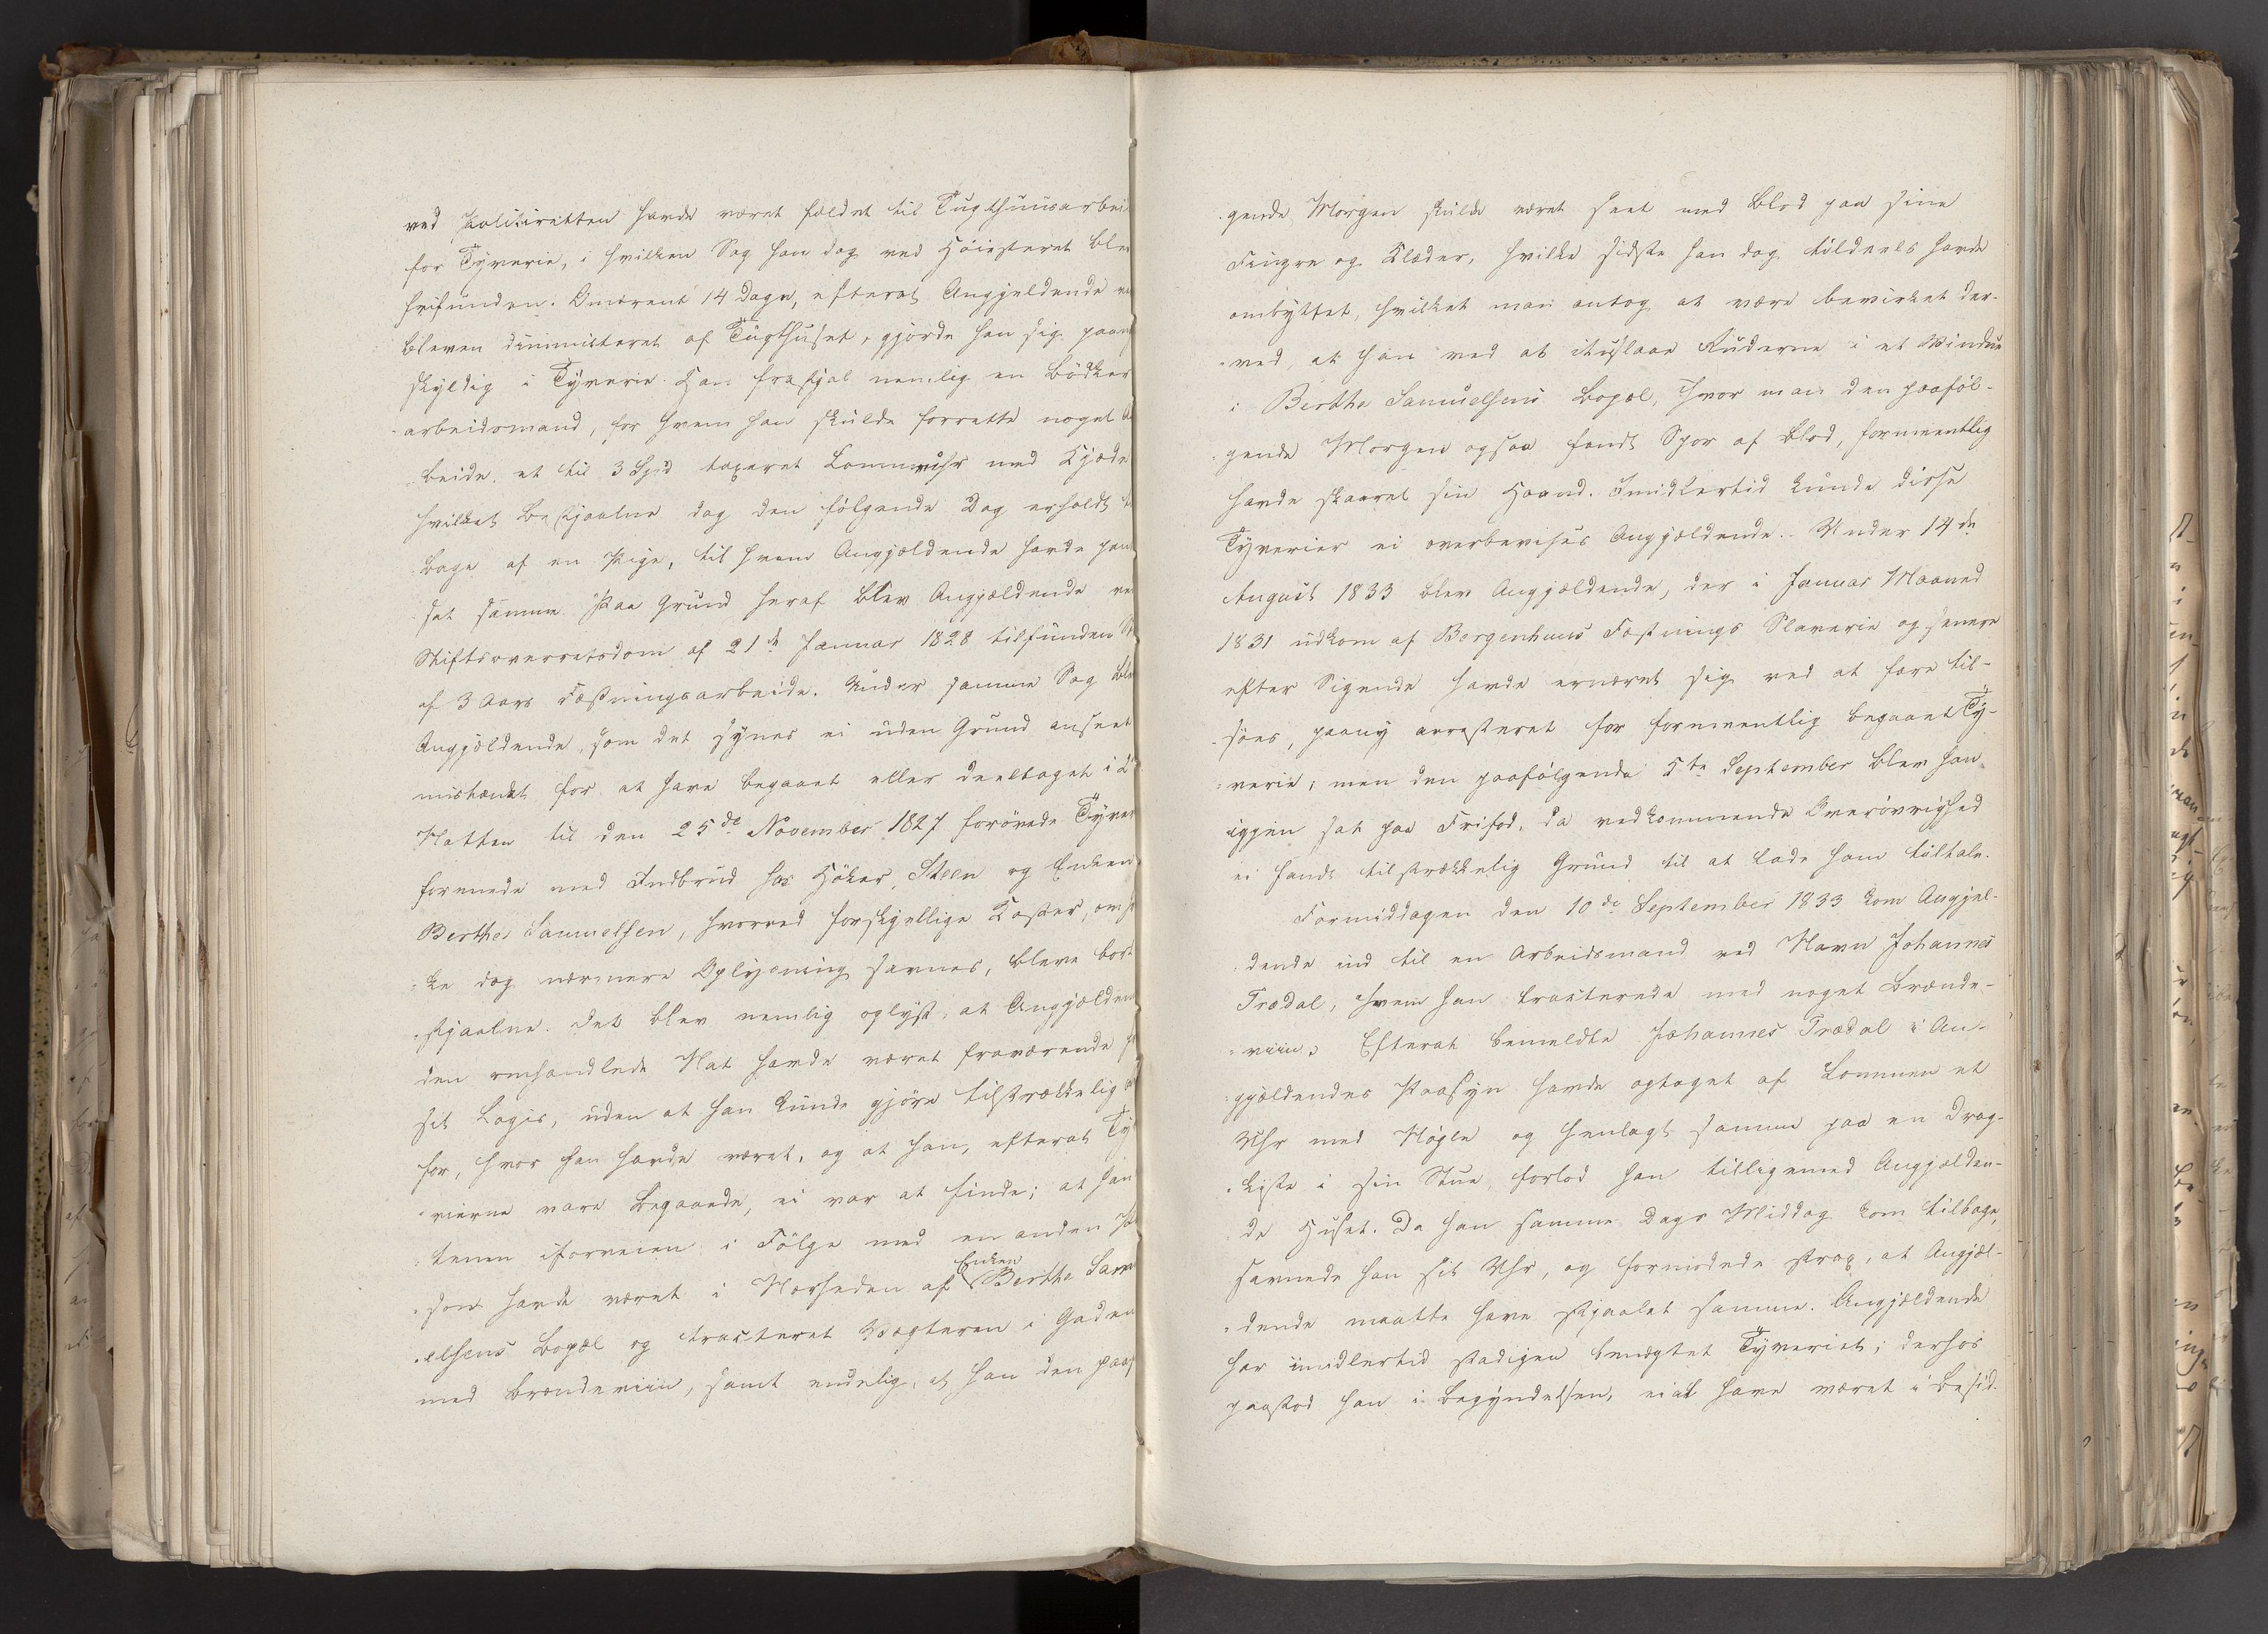 ved Politieretten havde været fældet til Tugthuusarbei
for Tyverie, i hvilken Sag han dog ved Høiesteret blev
frifunden. Omtrent 14 Dage, efterat Angjeldende va
bleven dimmitteret af Tugthuset, gjorde han sig paany
skyldig i Tyverie. Han frastjal nemlig en Bödker
-arbeidsmand, for hvem han skulde forrette noget A
beide, et til 3 Spd taxeret Lommeuhr med Kjæde
hvilket Bestjaalne dog den følgende Dag erholdt t
bage af en Pige, til hvem Angjældende havde pant
sat samme. Paa Grund heraf blev Angjældende ve
Stiftsoverretsdom af 21de Januar 1828 tilfunden St
af 3 Aars Fæstningsarbeide. Under samme Sag blev
Angjældende, som det synes ei uden Grund anseet
mistænkt for at have begaaet eller deeltaget i d
Natten til den 25de November 1827 forövede Tyver
formede med Indbrud hos Höker Steen og Enken
Berthe Samuelsen, hvorved forskjellige Koster, om h
-ke dog nærmere Oplysning savnes, bleve bort
-stjaalne. Det blev nemlig oplyst, at Angjælden
den omhandlede Nat havde været fraværende fr
sit Logis, uden at han kunde gjöre tilstrækkelig
for, hvor han havde været, og at han, efterat Ty
-rierne vare begaaede, ei var at finde; at han
-tenen iforveien i Følge med en anden P
-son havde været i Nærheden af Enken Berthe Sam
-elsens Bopæl og tracteret Vægteren i Gaden
med Brændeviin, samt endelig, at han den paaf
-gende Morgen skulde været seet med Blod paa sine
Fingre og Klæder, hvilke sidste han dog tildeels havde
ombyttet, hvilket man antog at være bevirket der-
-ved, at han ved at ituslaae Ruderne i et Vindue
i Berthe Samuelsens Bopæl, hvor man den paaföl-
-gende Morgen ogsaa fandt Spor af Blod, formeentlig
havde skaaret sin Haand. Imidlertid kunde disse
Tyverier ei overbevises Angjældende. Under 14de
August 1833 blev Angjældende, der i Januar Maaned
1831 udkom af Bergenhuus Fæstnings Slaverie og senere
efter Sigende havde ernæret sig ved at fare til-
-söes, paany arresteret for formeentlig begaaet Ty-
-verie, men den paafölgende 5te September blev han
igjen sat paa Frifod, da vedkommende Overövrighed
ei fandt tilstrækkelig Grund til at lade ham tiltale.
Formiddagen den 10de September 1833 kom Angjel-
-dende ind til en Arbeidsmand ved Navn Johannes
Trædal, hvem han tracterede med noget Brænde-
-viin. Efterat bemeldte Johannes Trædal i An-
-gjældendes Paasyn havde optaget af Lommen et
Uhr med Nögle og henlagt samme paa en Drag-
-kiste i sin Stue, forlod han tilligemed Angjælden-
de Huset. Da han samme Dags Middag kom tilbage,
savnede han sit Uhr, og formodede strax, at Angjæl-
-dende maatte have stjaalet samme. Angjældende
har imidlertid stadigen benægtet Tyveriet; derhos
paastod han i Begyndelsen, ei at have været i Besid-